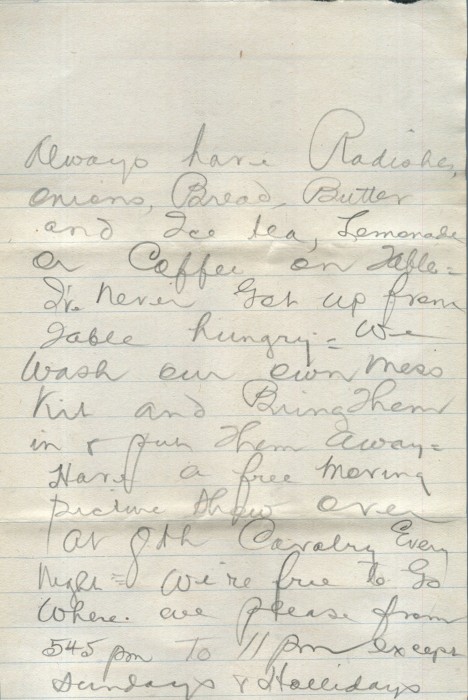 Always have Radishes,
onions, Bread, Butter
and Ice tea, Lemonade
or Coffee on Table =
I've never Got up from
Table hungry = We
Wash our own Mess
Kit and Bring Them
in & put Them away =
Have a free moving
picture show over
at 8th Cavalry Every
Night = We're free to Go
Where we please from
545 pm To 11 pm except
Sundays & Hollidays